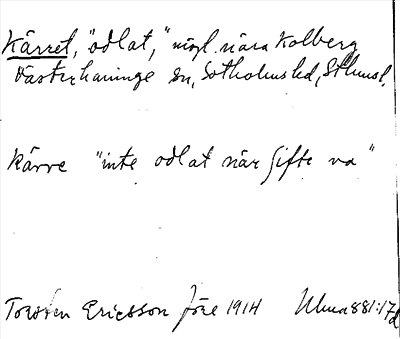 Kärret, "odlat," nägl. nära Kolberg
Västerhaninge sn, Sotholms hd, Sthmsl.
Kärre "inte odlat när Gifte va"
Torsten Ericsson före 1914 Ulma 881:17
d